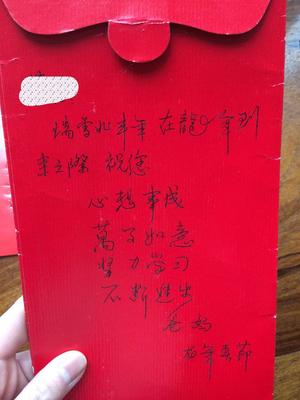 瑞雪兆丰年 在龍年到
来之際 祝您
心想事成
萬事如意
努力学习
不断進步
爸妈
年春節